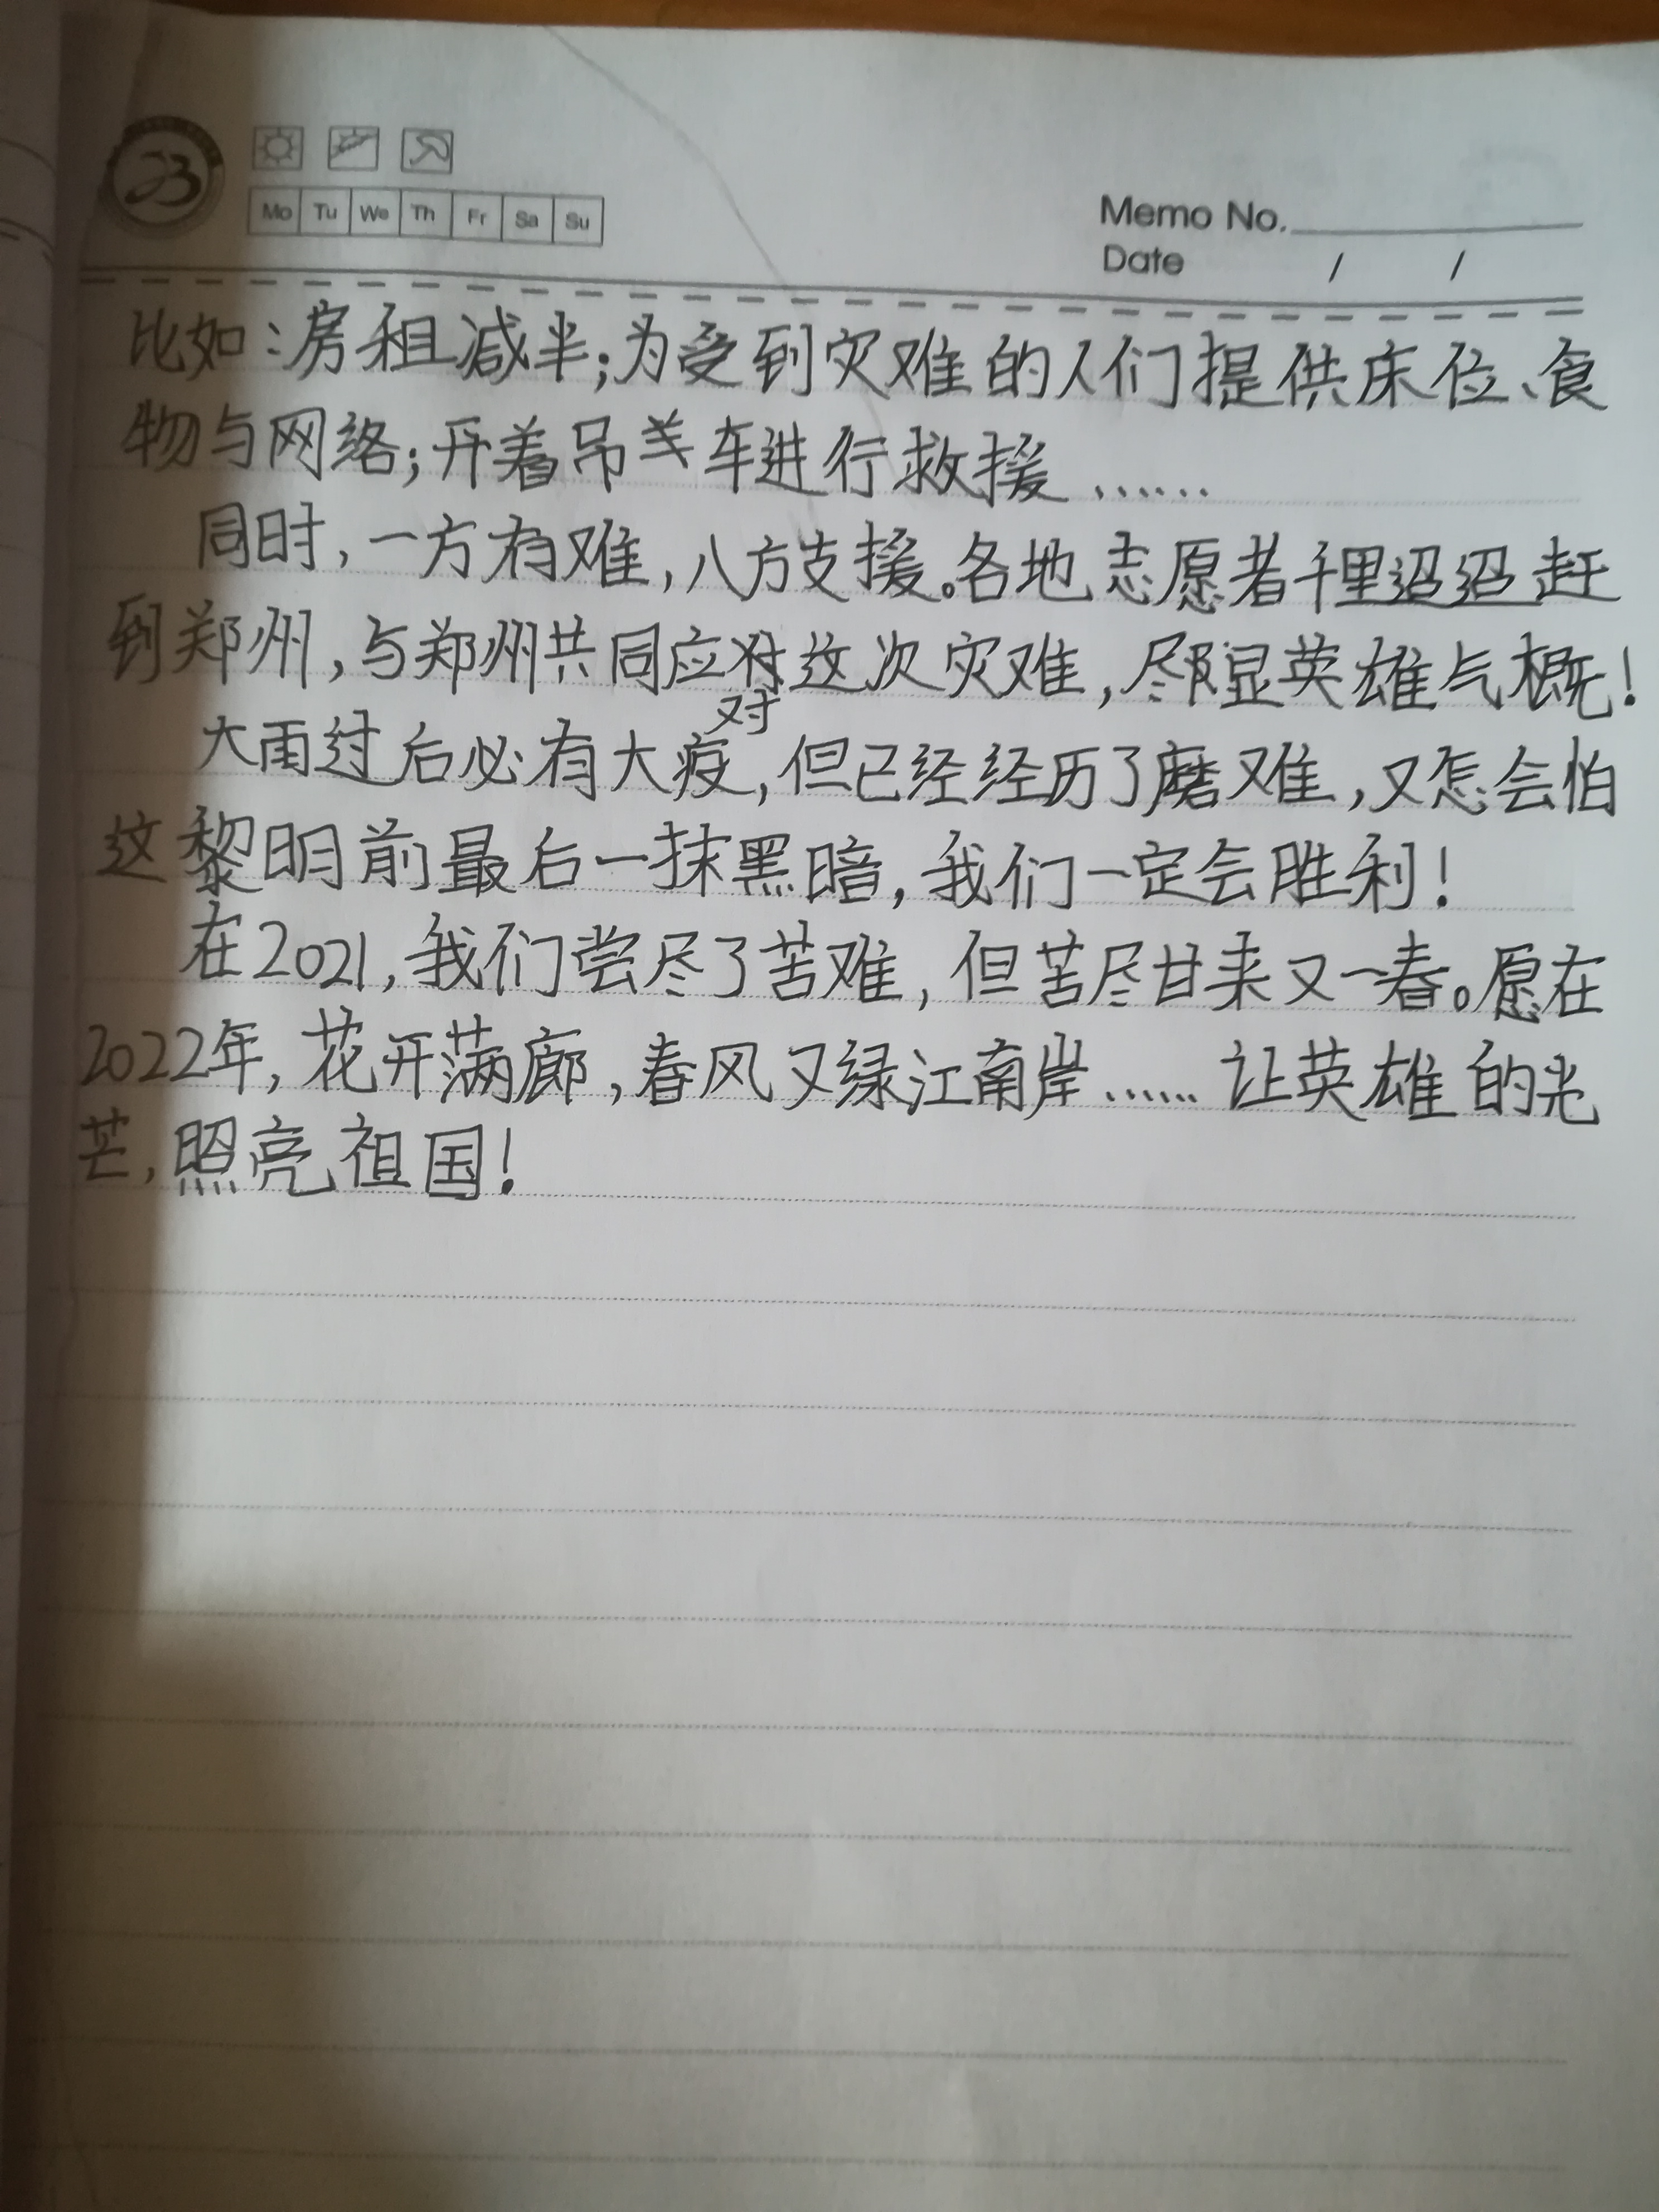 Mo Tu We Th Fr Sa Su
Memo No.
Date / /
比如:房租减半;为受到灾难的人们提供床位、食
物与网络;开着吊车进行救援……
同时,一方有难,八方支援。各地志愿者千里迢迢赶
到郑州,与郑州共同应对这次灾难,尽显英雄气概!
大雨过后必有大疫,但已经经历了磨难,又怎会怕
这黎明前最后一抹黑暗,我们一定会胜利!
在2021,我们尝尽了苦难,但苦尽甘来又一春。愿在
2022年,花开满廊,春风又绿江南岸……让英雄的光
芒,照亮祖国!